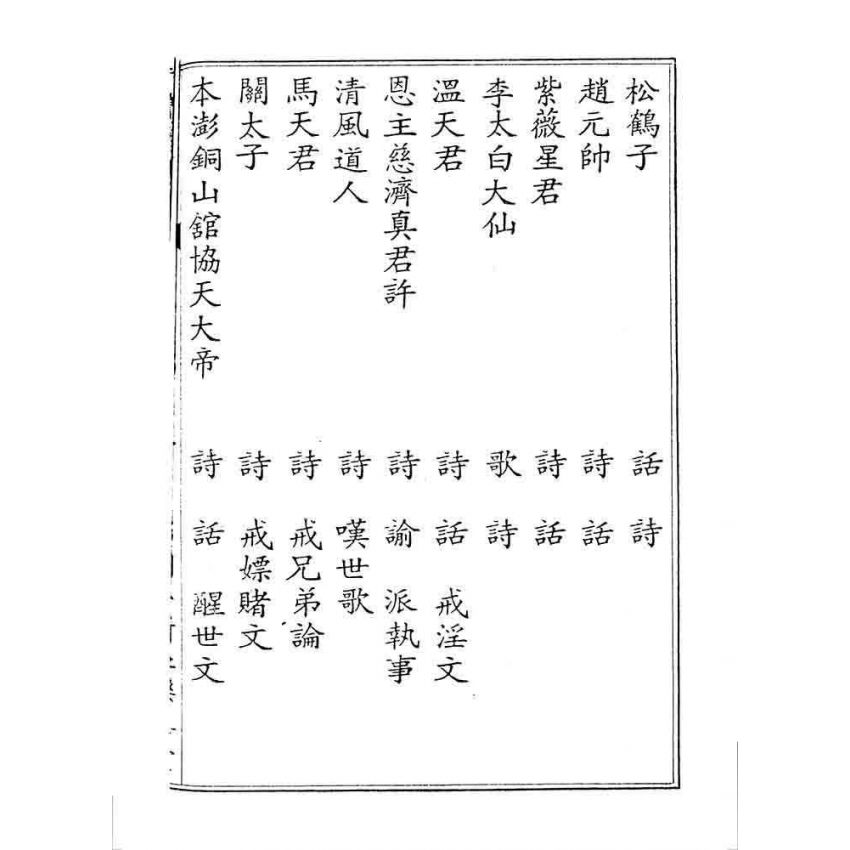 松鶴子 話 詩
趙元帥 詩 話
紫薇星君 詩 話
李太白大仙 歌 詩
溫天君 詩 話 戒淫文
恩主慈濟真君許 詩 諭 派執事
清風道人 詩 嘆世歌
馬天君 詩 戒兄弟論
關太子 詩 戒嫖賭文
本澎銅山舘協天大帝 詩 話 醒世文